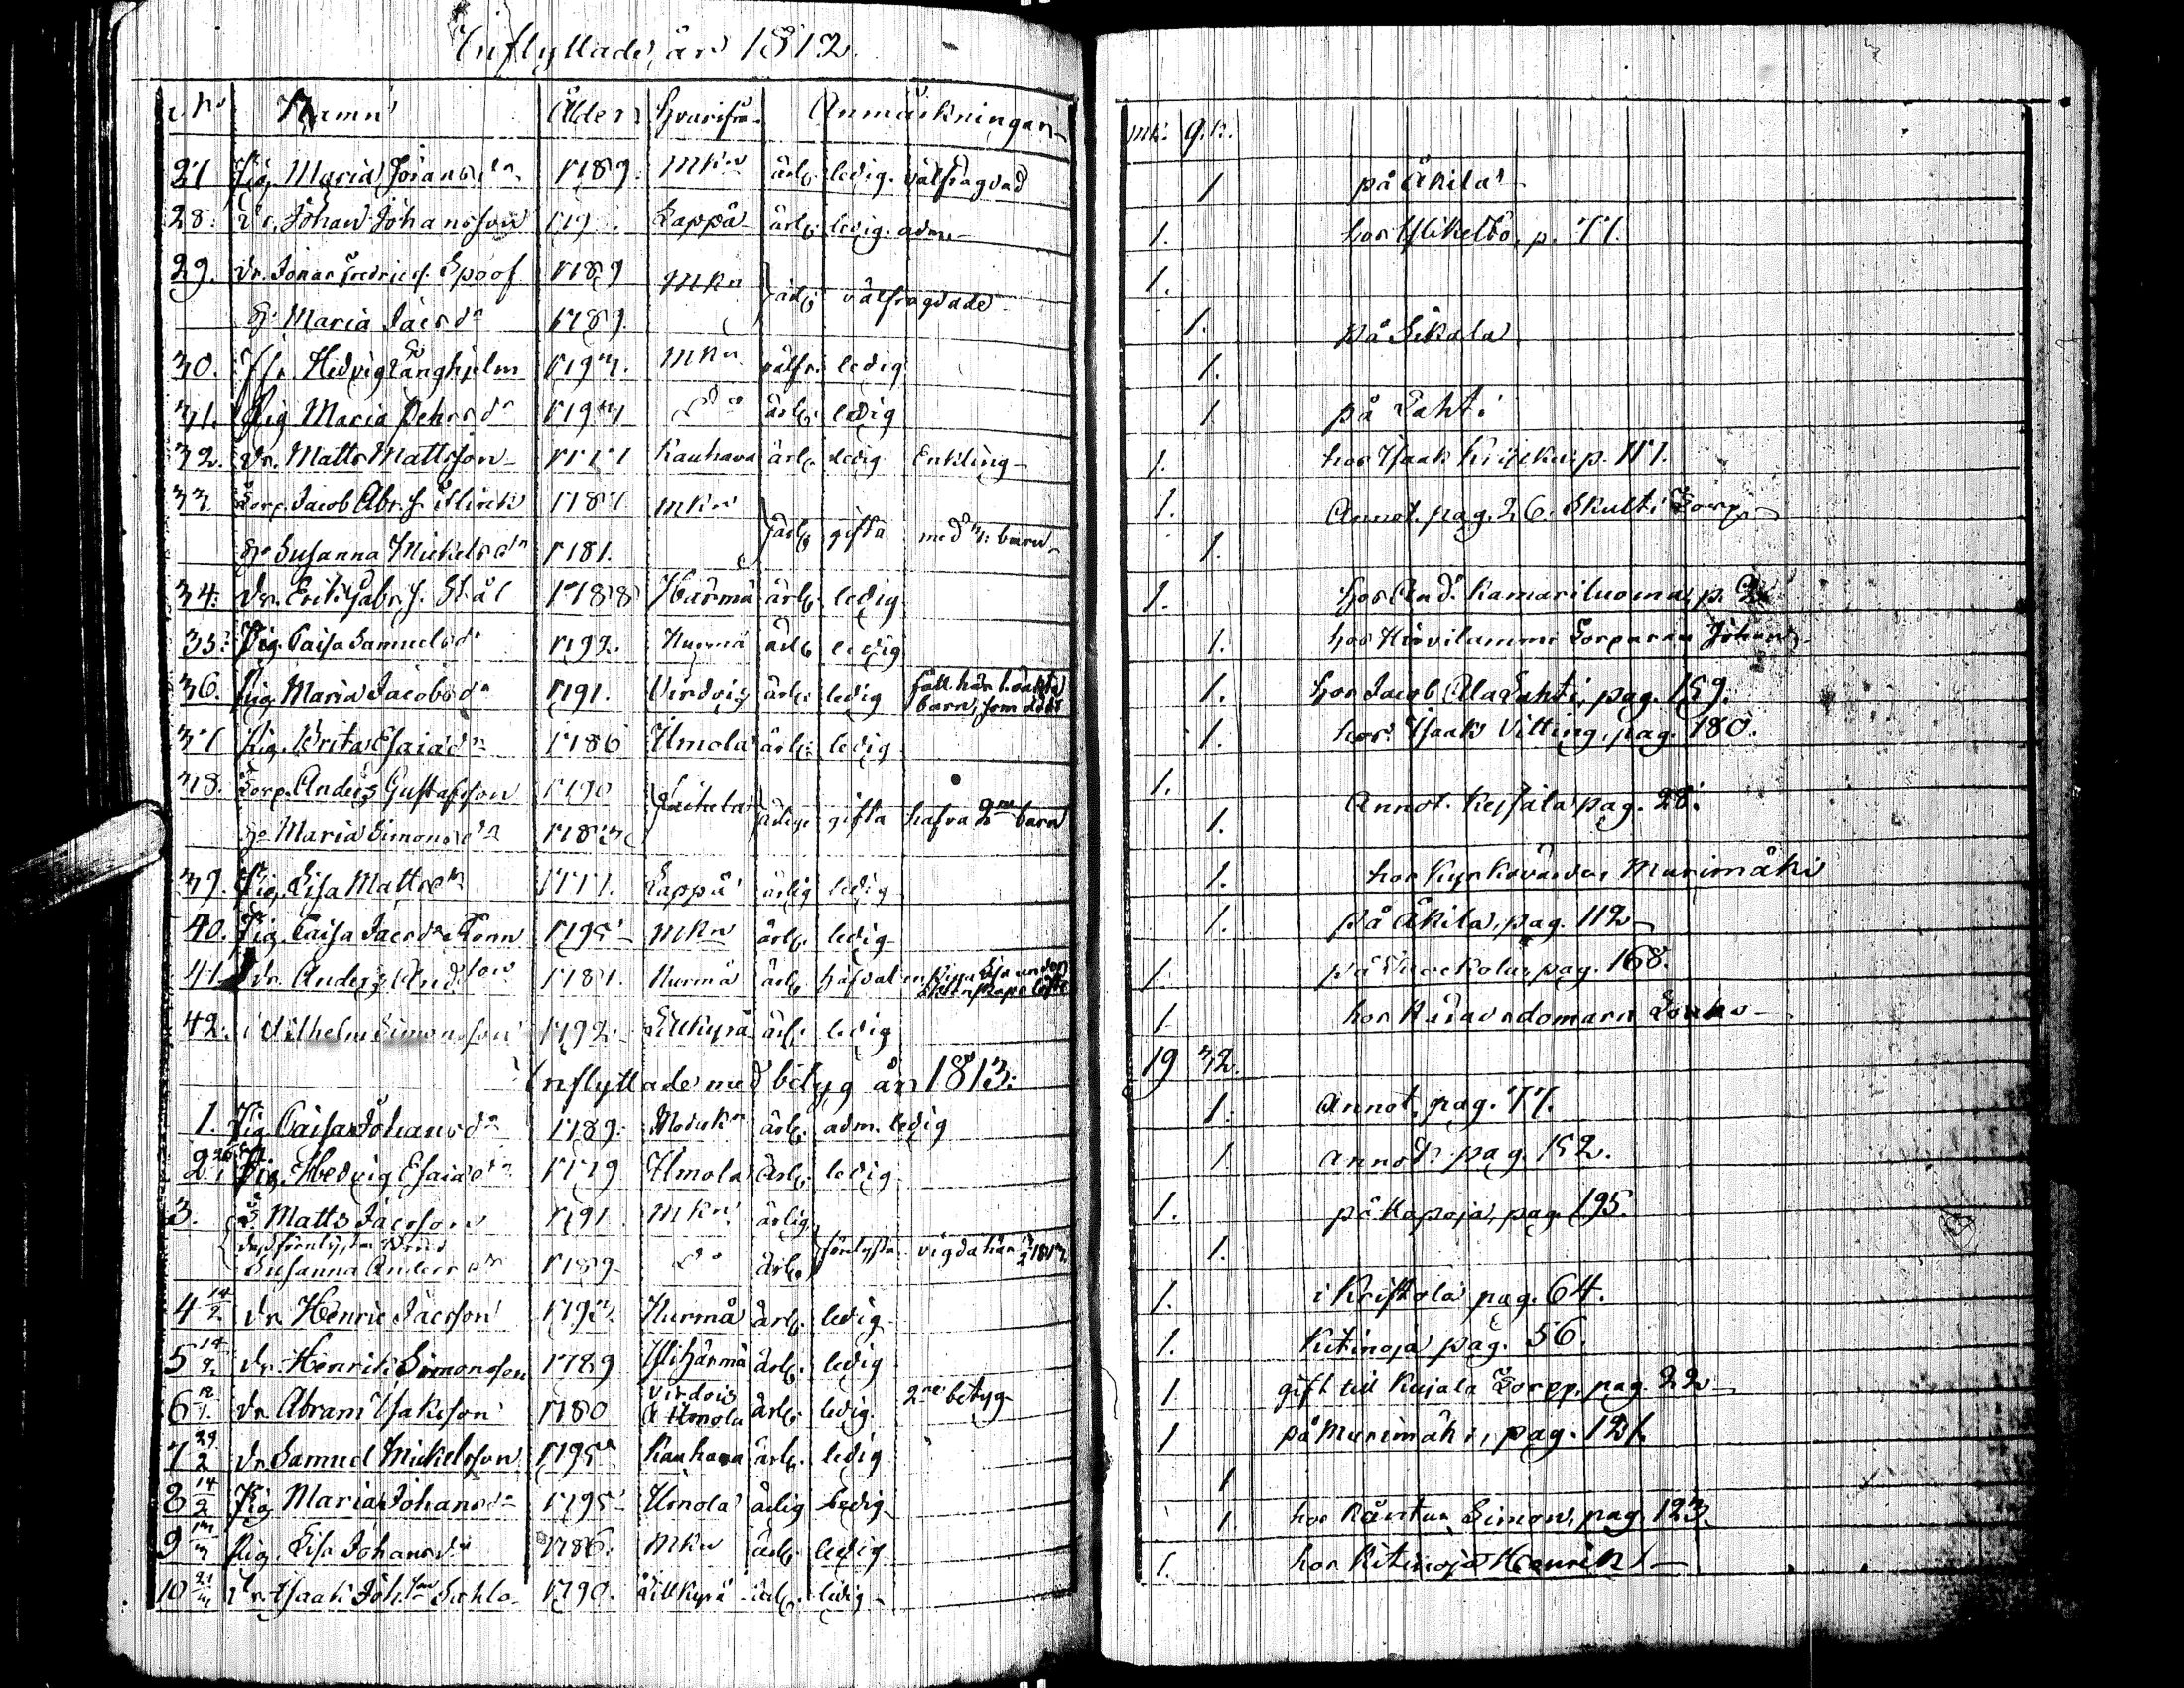 Inflyttade, år 1812.
No Namn Ålder Hvarifrå- Anmärkningar
27 Pig. Maria Johansdr 1789. MKn ärl. ledig. välfrägdad
28. Dr. Johan Johansson Lappå ärl. ledig. adm.
29. Dr. Jonas Fredricss. Spoof 1789 MKn ärl. välfrägdade
H. Maria Jacsdr 1789.
30. Hedvig Langhjelm MKn välfr. ledig
31. Pig Maria Pehrsdr Do ärl. ledig
32. Dr. Matts Mattsson Kauhava ärl. ledig Enkling
33 Torp. Jacob Abr.s. Flinck 1787 MKn ärl. gifta med 3: barn
H. Susanna Mickelsdr 181.
34. Dr. Erik Gabr.s. Stål 1788 Härmä ärl. ledig
35. Pig. Caisa Samuelsdr 1792. Nurmå ärl. ledig
36. Pig. Maria Jacobsdr 1791. Virdois ärl. ledig barn, som dödt
37 Pig. Brita Esaiædr 1786 Ilmola ärl. ledig
38. Torp. Anders Gustafsson 1790 Laihela ärlige gifta hafva 2ne barn
H. Maria Simonsdr 1783
39. Pig. Lisa Mattsdr 1777. Lappå ärlig ledig
40. Pig. Caisa Jacsdr Rönn 1795 MKn ärl. ledig
41 Dr. Anders And.son 1787. Nurmå ärl. en Piga Lisa under äktenskaps löfte
42. Vilhelm Simonsson 1792. Lillkyrå ärl. ledig
Inflyttade med betyg år 1813.
1. Pig. Caisa Johansdr 1789. ärl. adm. ledig
2. Pig. Hedvig Esaiædr 1779 Ilmola ärl. ledig
3. D. Matts Jacsson 1791 MKn ärlig
Susanna Andersdr 1789 Do ärl. vigda här 1813
4 14/2 Dr. Henric Jacsson 1793. Nurmå ärl. ledig
5 14/2 Dr. Henrik Simonsson 1789 Ylihärmä ärl. ledig
6 Dr. Abram Isaksson 1780 Virdois & Ilmola ärl. ledig. 2ne betyg
7 29/2 Dr. Samuel Mickelsson 1795 Kauhava ärl. ledig
8 14/2 Pig Maria Johansdr 1795 Ilmola ärlig ledig
9 Pig. Lisa Johansdr 1786. MKn ärl. ledig
10 Dr. Isaak Joh.son Lillkyrå ärl. ledig
MK. Q.K.
1 på Äkilä
1. hos Mikelbo, p. 77.
1.
1. på Sikala
1.
1 på Lahti
1. hos Isaak
1. Annot. pag. 26. Skulti Torp.
1.
1. hos And. Kamariluoma, p.
1. hos Hirvilammi Torparen Johan
1. hos Jacob Ala Lahti, pag. 159.
1. hos Isaak Vitting, pag. 180.
1. Annot. pag. 28.
1.
1. hos Kyrkovärden Murimäki
1. på Äkilä, pag. 112
1 pag. 168.
1 hos Häradsdomarn
19 32.
1. Annot. pag. 77.
1. annot. pag. 152.
1. på Kapoja, pag. 195.
1.
1. i Kristola pag. 64.
1. Kitinoja pag. 56.
1 gift till Kujala Torpp. pag. 22
1 på Murimäki, pag. 121.
1
1. hos Räntus Simon, pag. 123.
1. hos Kitinoja Henrik